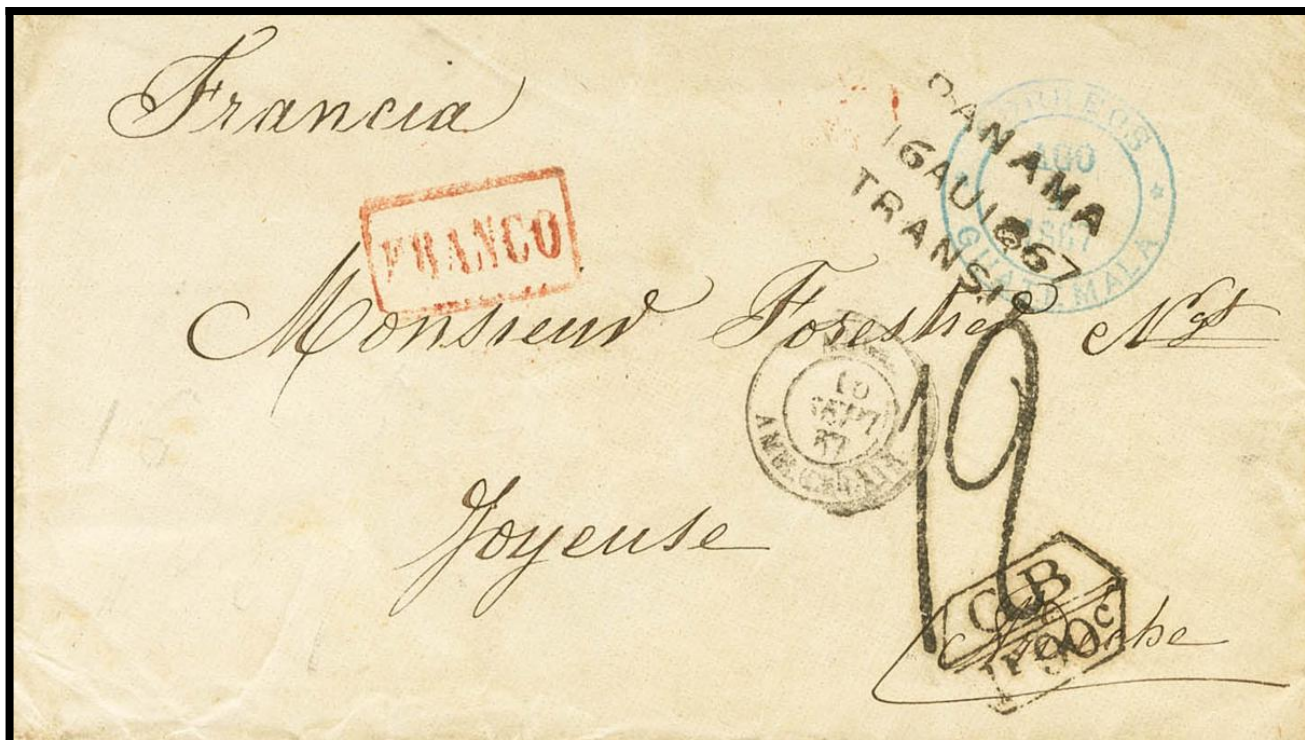 Francia
PANAMA
16 AU 1867
TRANSIT
CORREOS
AGO
1867
GUATEMALA
FRANCO
Monsieur Forestier Ngt
10
SEPT
67
ANG. CALAIS
Joyeuse
12
GB
1F90c
Ardèche